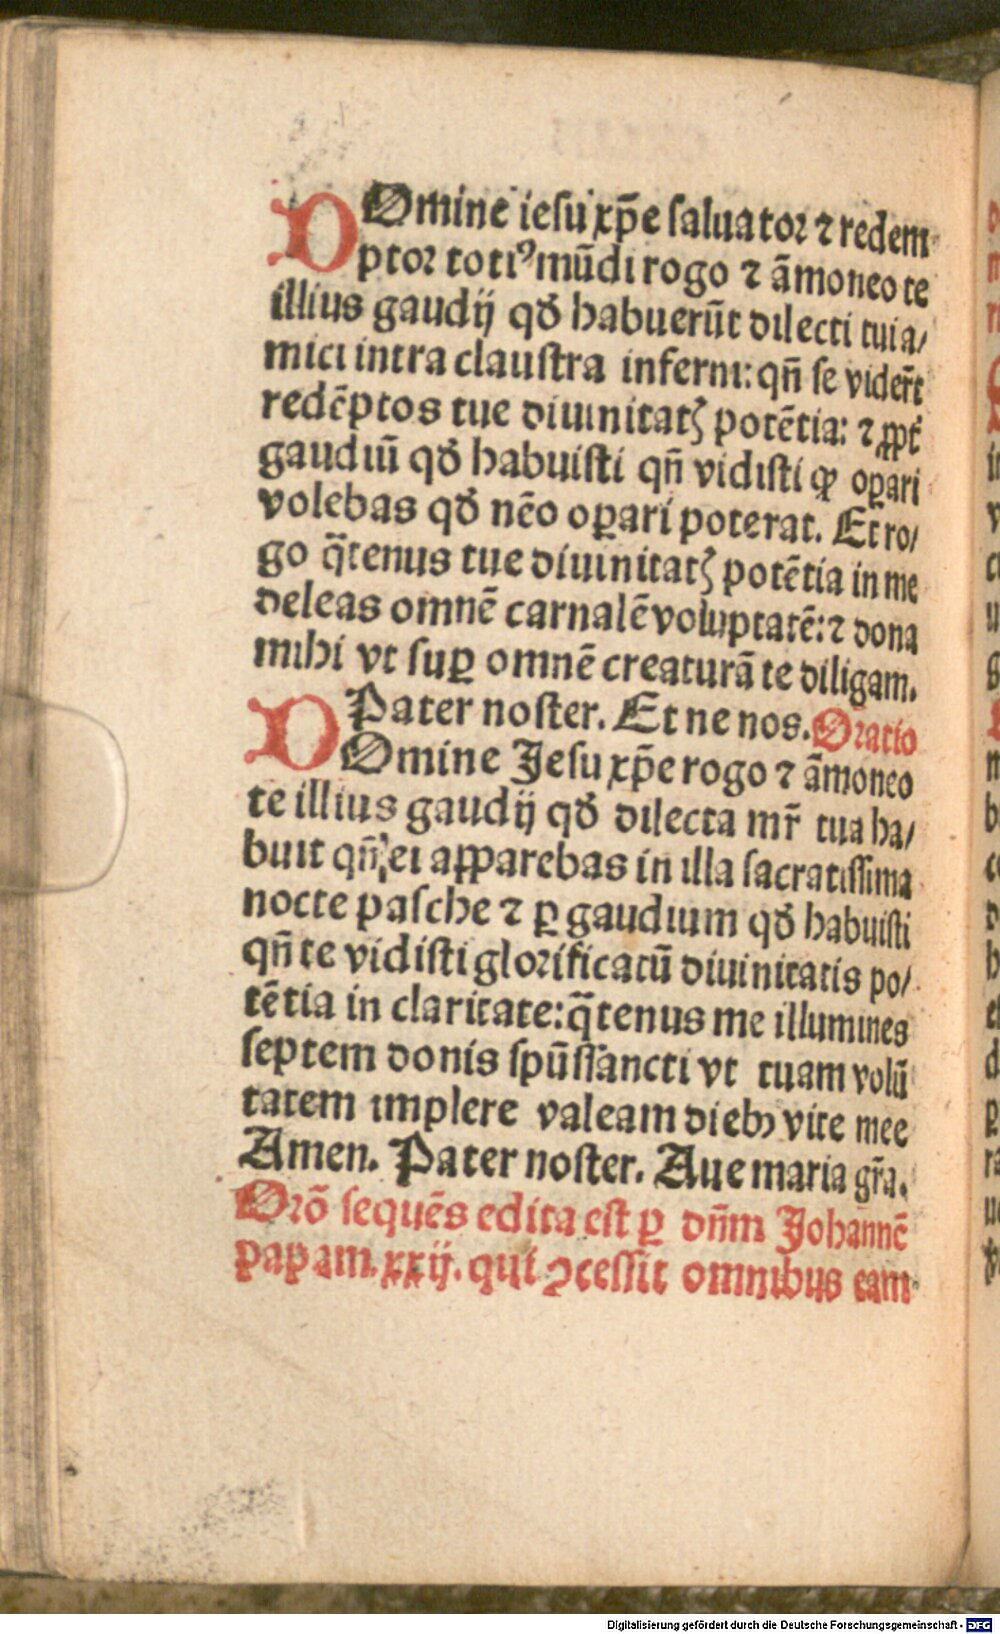 DOmine iesu xp̄e saluator ⁊ redem
ptor toti⁹ mūdi rogo ⁊ āmoneo te
illius gaudij qď habuerūt dilecti tui a/
mici intra claustra inferni: qn̄ se vider̄t
redēptos tue diuinitatꝫ potētia: ⁊
gaudiū qď habuisti qn̄ vidisti ꝙ oꝑari
volebas qď nēo oꝑari poterat. Et ro/
go q̄tenus tue diuinitatꝫ potētia in me
deleas omnē carnalē voluptatē: ⁊ dona
mihi vt suꝑ omnē creaturā te diligam.
Pater noster. Et ne nos. Oratio
DOmine Jesu xp̄e rogo ⁊ āmoneo
te illius gaudij qď dilecta mr̄ tua ha/
buit qn̄ ei apparebas in illa sacratissima
nocte pasche ⁊ ꝑ gaudium qď habuisti
qn̄ te vidisti glorificatū diuinitatis po/
tētia in claritate: q̄tenus me illumines
septem donis spūssancti vt tuam volū
tatem implere valeam diebꝰ vite mee
Amen. Pater noster. Aue maria gr̄a.
Orō sequēs edita est ꝑ dn̄m Johannē
papam. xxij. qui ꝯcessit omnibus eam
Digitalisierung gefördert durch die Deutsche Forschungsgemeinschaft - DFG